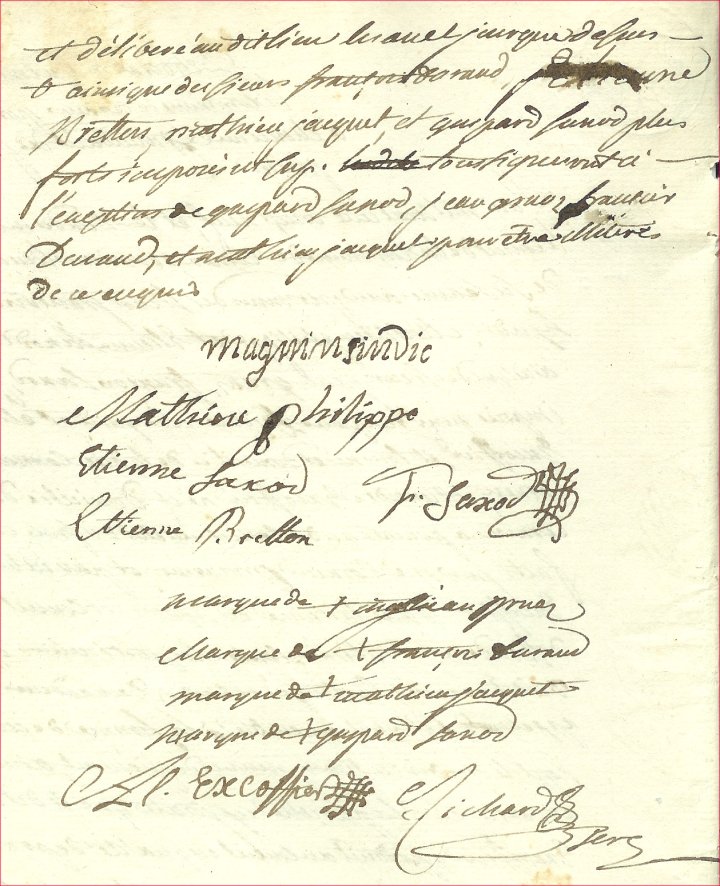 et délibéré audit lieu les an et jour que dessus
& ainsique des sieurs françois durand, Etienne
Bretton mathieu jacquet, et gaspard saxod plus
forts imposés et tous signeront à
l'exception de gaspard saxod, jean françois
Durand, et mathieu jacquet pour etre illiterés
de ce enquis
magnin sindic
Mathieu philippe
Etienne Saxod
f. Saxod
Ettienne Bretton
marque de +
Marque de + françois durand
marque de + mathieu jacquet
Marque de + gaspard saxod
Excoffier
Richard